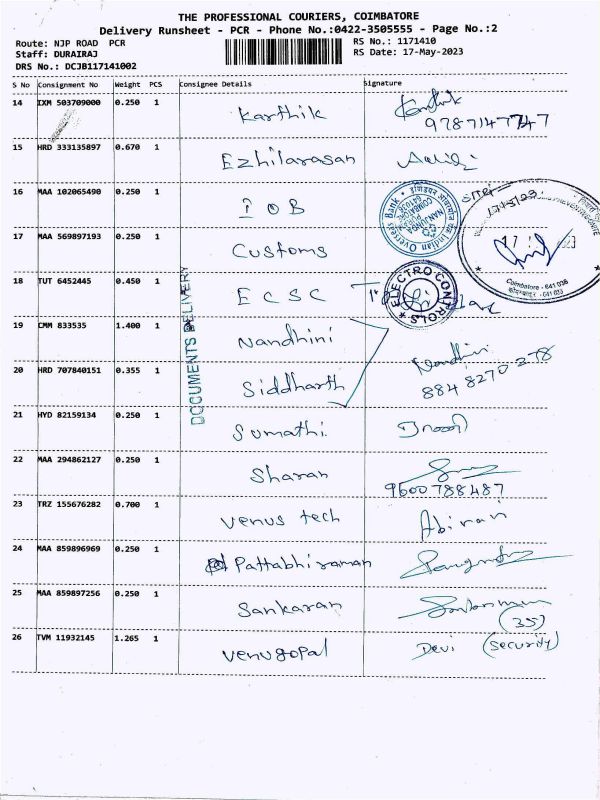 THE PROFESSIONAL COURIERS, COIMBATORE
Delivery Runsheet - PCR - Phone No.:0422-3505555 - Page No.:2
Route: NJP ROAD PCR
RS No.: 1171410
Staff: DURAIRAJ
RS Date: 17-May-2023
DRS No.: DCJB117141002
S No Consignment No Weight PCS Consignee Details Signature
14 IXM 503709000 0.250 1 Karthik Karthik
9787147747
15 HRD 333135897 0.670 1 Ezhilarasan
16 MAA 102065490 0.250 1 IOB
Indian Overseas Bank
17 MAA 569897193 0.250 1 Customs
Coimbatore - 641 038
18 TUT 6452445 0.450 1 ECSC
ELECTRO CONTROLS
19 CMM 833535 1.400 1 Nandhini Nandhini
20 HRD 707840151 0.355 1 Siddharth 8848270278
DOCUMENTS DELIVERY
21 HYD 82159134 0.250 1 Sumathi
22 MAA 294862127 0.250 1 Sharan
9600788487
23 TRZ 155676282 0.700 1 Venus tech Abirami
24 MAA 859896969 0.250 1 Pattabhiraman
25 MAA 859897256 0.250 1 Sankaran
(35)
26 TVM 11932145 1.265 1 Venugopal Devi (Security)